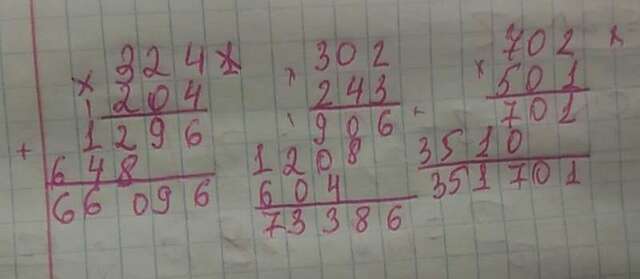 324
× 204
1296
+ 648
66096
302
× 243
906
1208
604
73386
702
× 501
701
3510
351701